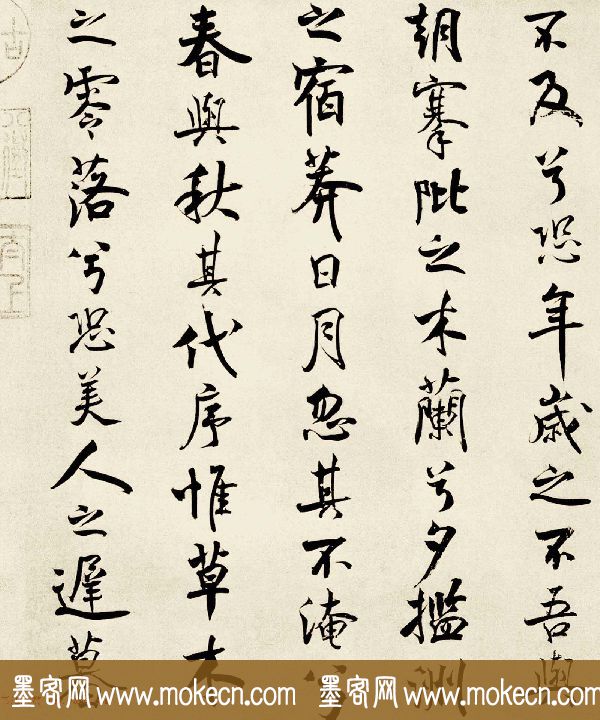 不及兮恐年歲之不吾與
朝搴阰之木蘭兮夕攬洲
之宿莽日月忽其不淹兮
春與秋其代序惟草木
之零落兮恐美人之遲暮
墨客网 www.mokecn.com 墨客网 www.mokecn.com